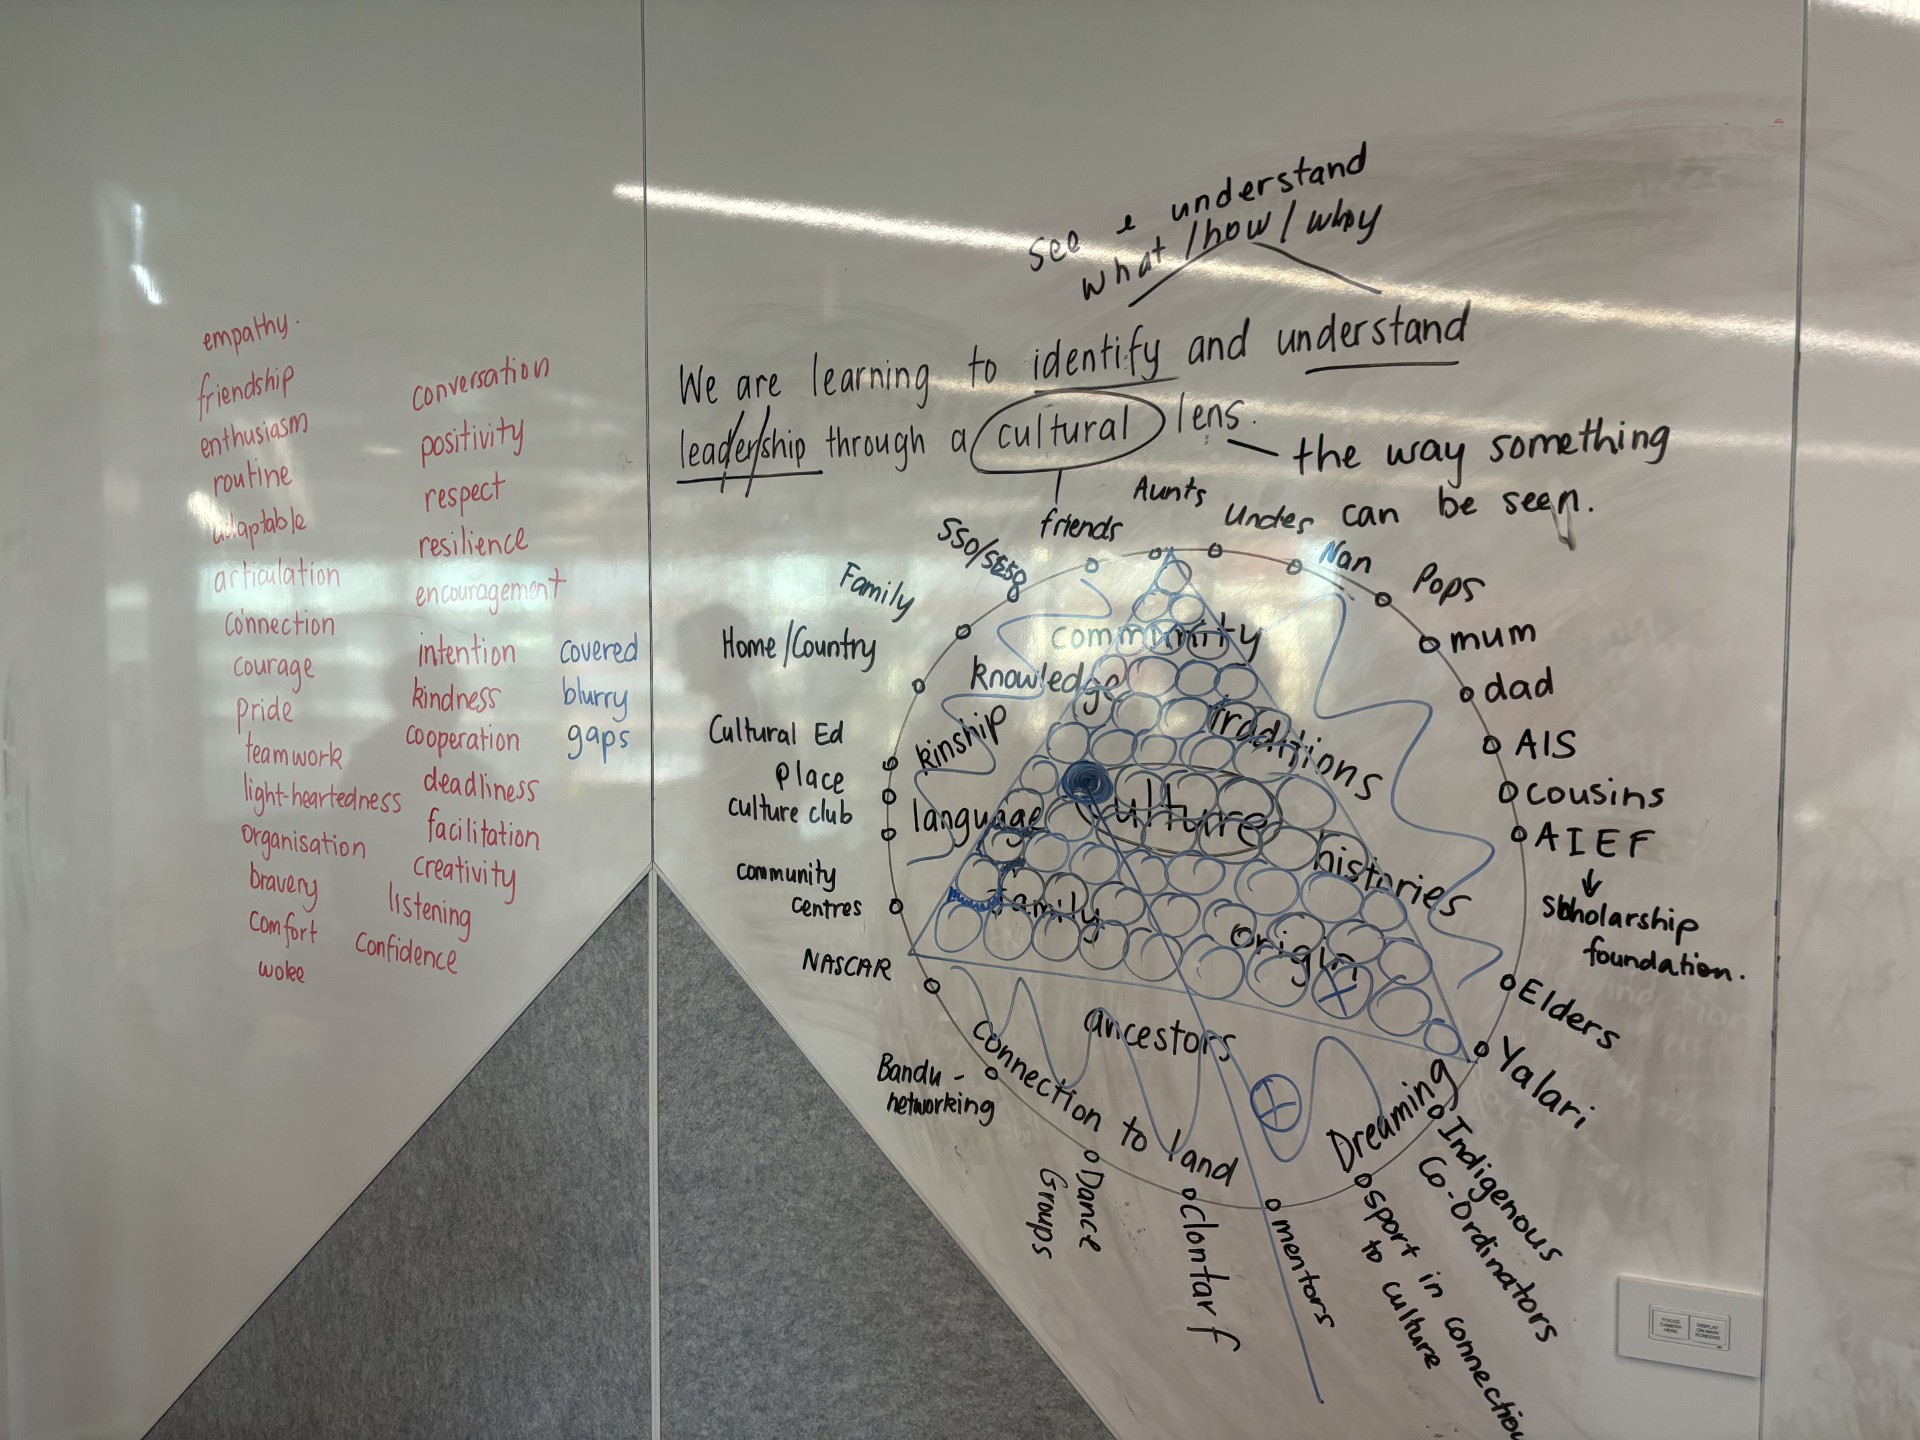 empathy.
friendship
enthusiasm
routine
adaptable
articulation
connection
courage
pride
teamwork
light-heartedness
organisation
bravery
comfort
woke
conversation
positivity
respect
resilience
encouragement
intention
kindness
cooperation
deadliness
facilitation
creativity
listening
confidence
covered
blurry
gaps
see & understand
what /how / why
We are learning to identify and understand
leadership through a cultural lens.
the way something
can be seen.
friends
Aunts
Uncles
Nan
Pops
mum
dad
AIS
cousins
AIEF
Scholarship
foundation.
Elders
Yalari
Indigenous
Co-Ordinators
sport in connection
to culture
mentors
Clontarf
Dance
Groups
Bandu -
networking
NASCAR
community
centres
culture club
place
Cultural Ed
Home/Country
Family
community
knowledge
kinship
traditions
language
culture
histories
family
origin
ancestors
connection to land
Dreaming
FOCUS
CAMERA
HERE
DISPLAY
ON MAIN
SCREENS